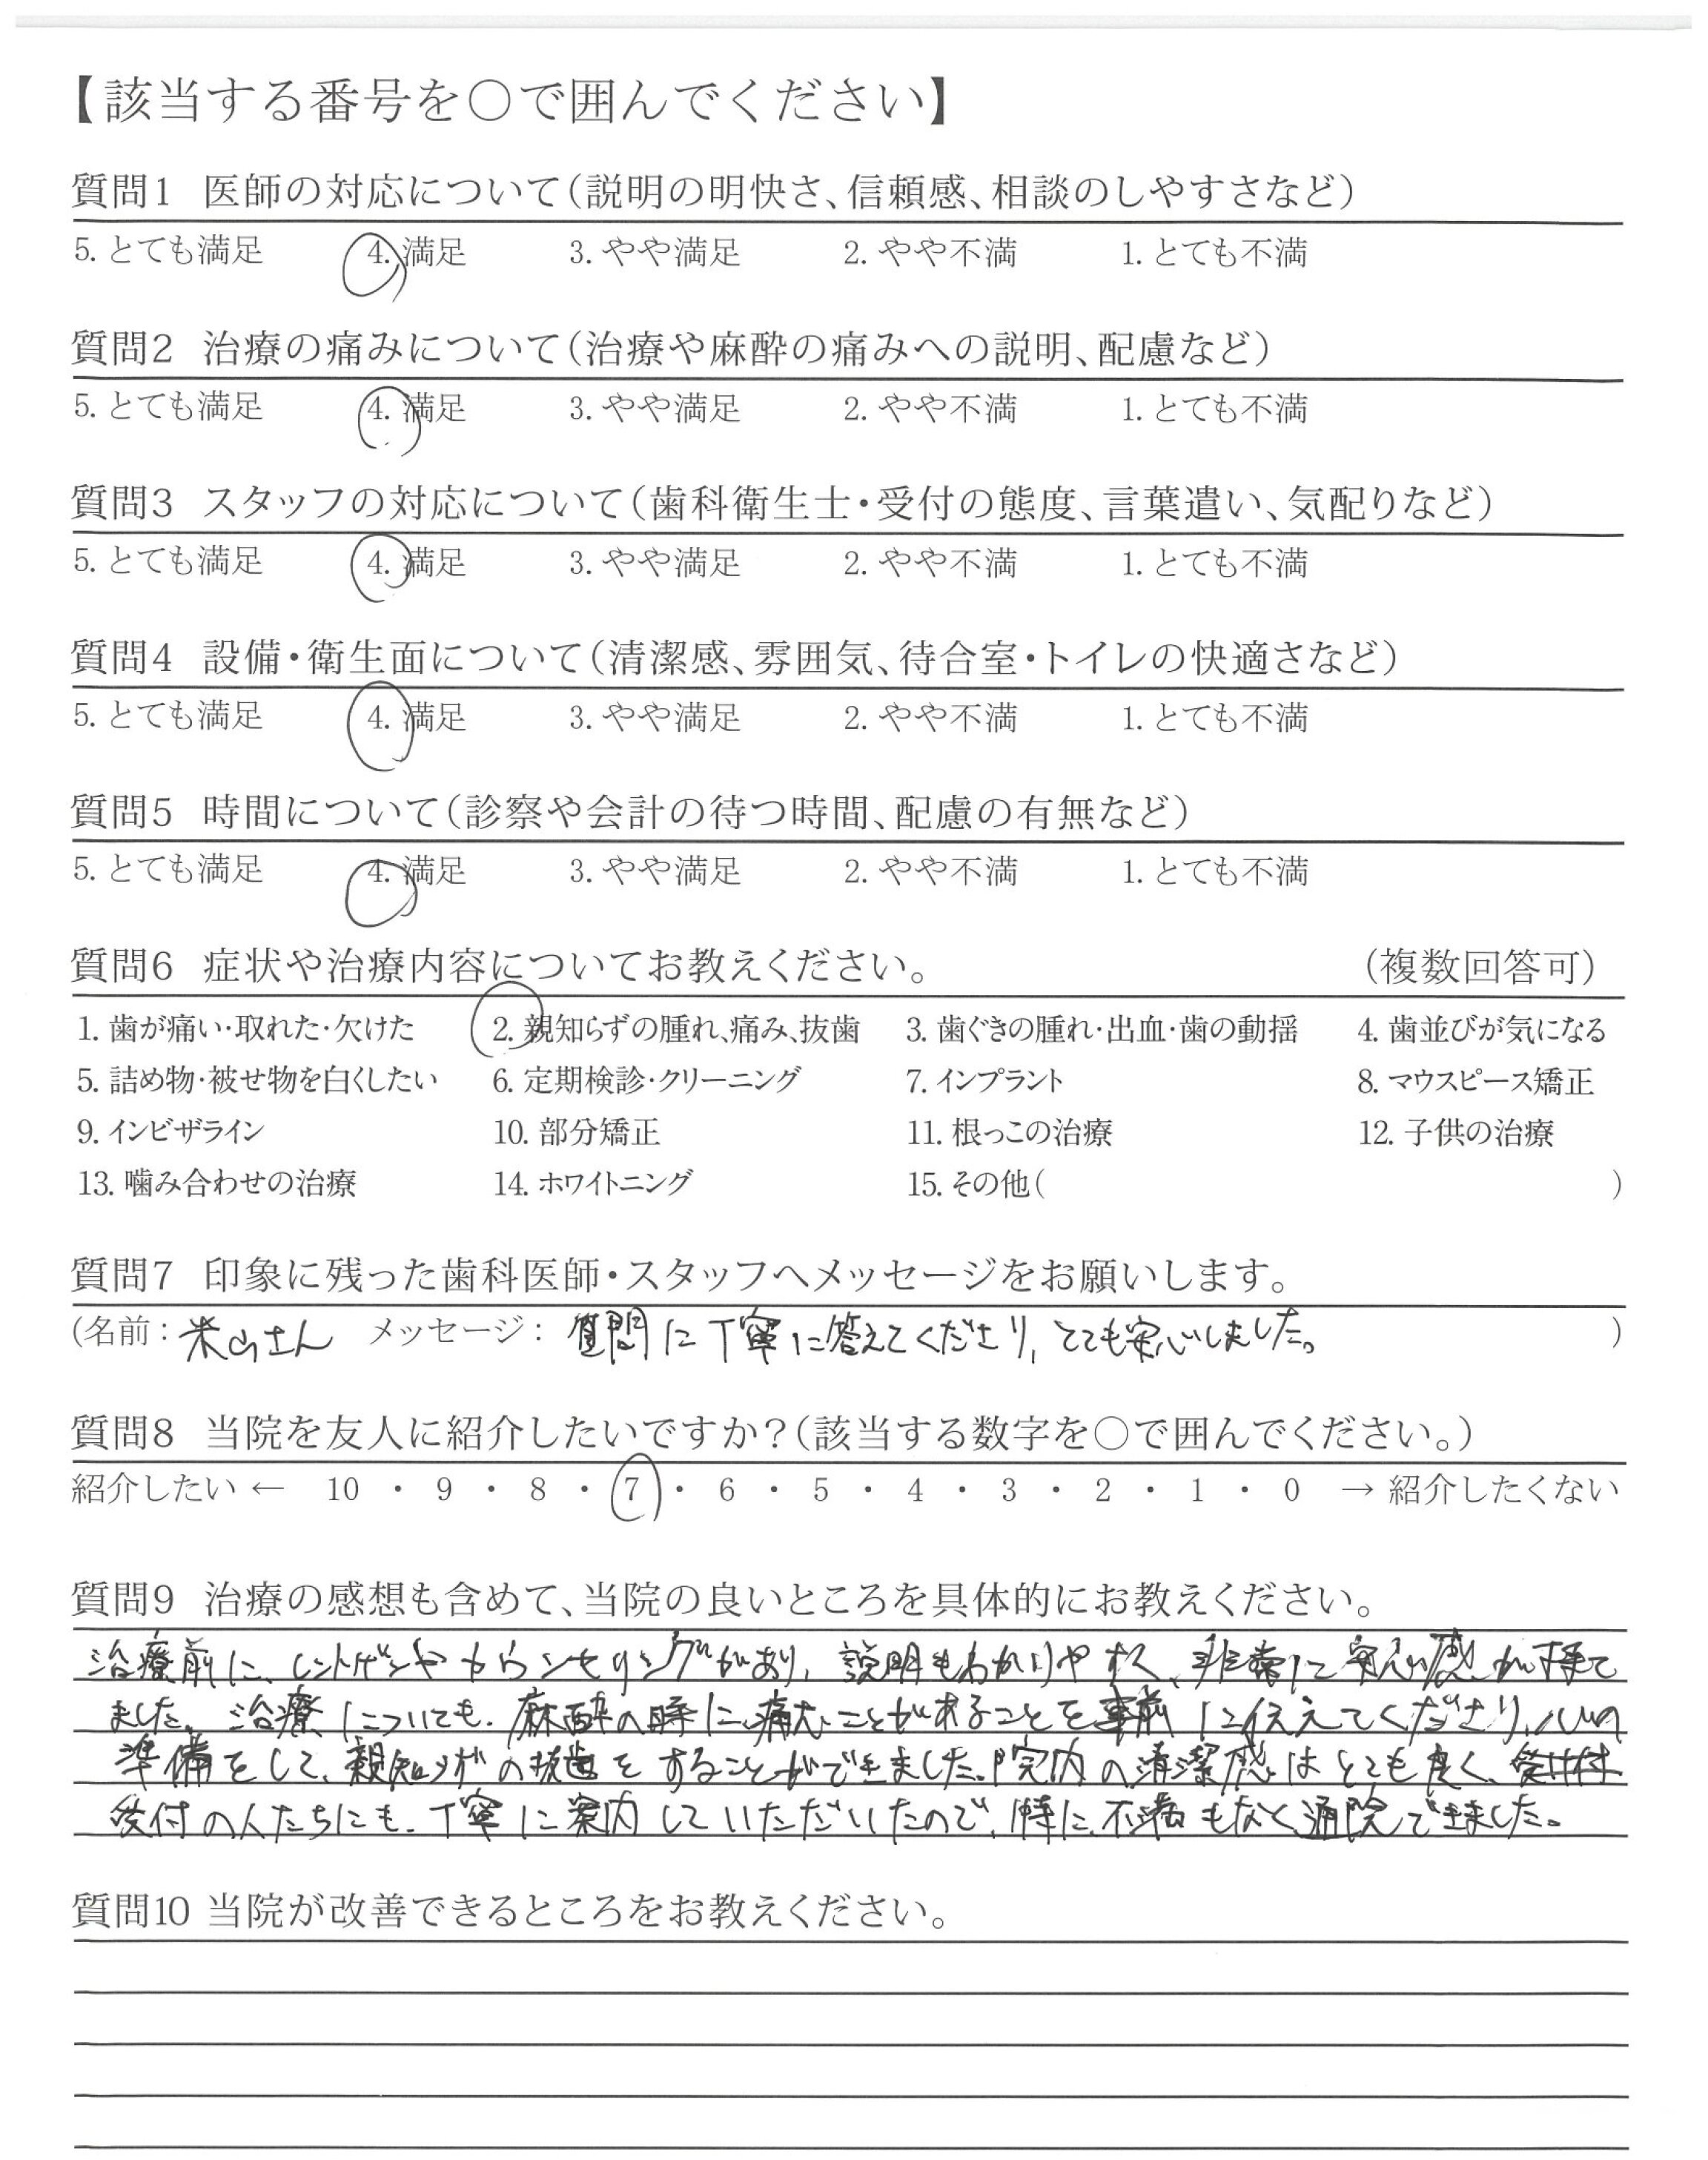 【該当する番号を〇で囲んでください】
質問1 医師の対応について(説明の明快さ、信頼感、相談のしやすさなど)
5. とても満足 4. 満足 3. やや満足 2. やや不満 1. とても不満
質問2 治療の痛みについて(治療や麻酔の痛みへの説明、配慮など)
5. とても満足 4. 満足 3. やや満足 2. やや不満 1. とても不満
質問3 スタッフの対応について(歯科衛生士・受付の態度、言葉遣い、気配りなど)
5. とても満足 4. 満足 3. やや満足 2. やや不満 1. とても不満
質問4 設備・衛生面について(清潔感、雰囲気、待合室・トイレの快適さなど)
5. とても満足 4. 満足 3. やや満足 2. やや不満 1. とても不満
質問5 時間について(診察や会計の待つ時間、配慮の有無など)
5. とても満足 4. 満足 3. やや満足 2. やや不満 1. とても不満
質問6 症状や治療内容についてお教えください。 (複数回答可)
1. 歯が痛い・取れた・欠けた 2. 親知らずの腫れ、痛み、抜歯 3. 歯ぐきの腫れ・出血・歯の動揺 4. 歯並びが気になる
5. 詰め物・被せ物を白くしたい 6. 定期検診・クリーニング 7. インプラント 8. マウスピース矯正
9. インビザライン 10. 部分矯正 11. 根っこの治療 12. 子供の治療
13. 噛み合わせの治療 14. ホワイトニング 15. その他( )
質問7 印象に残った歯科医師・スタッフへメッセージをお願いします。
(名前：米山さん メッセージ： 質問に丁寧に答えてくださり、とても安心しました。 )
質問8 当院を友人に紹介したいですか？(該当する数字を〇で囲んでください。)
紹介したい ← 10 ・ 9 ・ 8 ・ 7 ・ 6 ・ 5 ・ 4 ・ 3 ・ 2 ・ 1 ・ 0 → 紹介したくない
質問9 治療の感想も含めて、当院の良いところを具体的にお教えください。
治療前に、レントゲンやカウンセリングがあり、説明もわかりやすく、非常に安心感が持て
ました。治療についても、麻酔の時に痛むことがあることを事前に伝えてくださり、心の
準備をして、親知らずの抜歯をすることができました。院内の清潔感はとても良く、受け付
受付の人たちにも、丁寧に案内していただいたので、特に、不満もなく通院できました。
質問10 当院が改善できるところをお教えください。